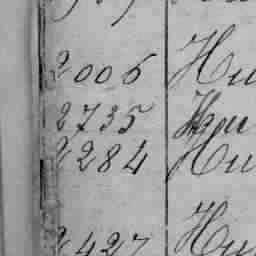 2006 Ни
2735
2284 Ни
2427 Ни